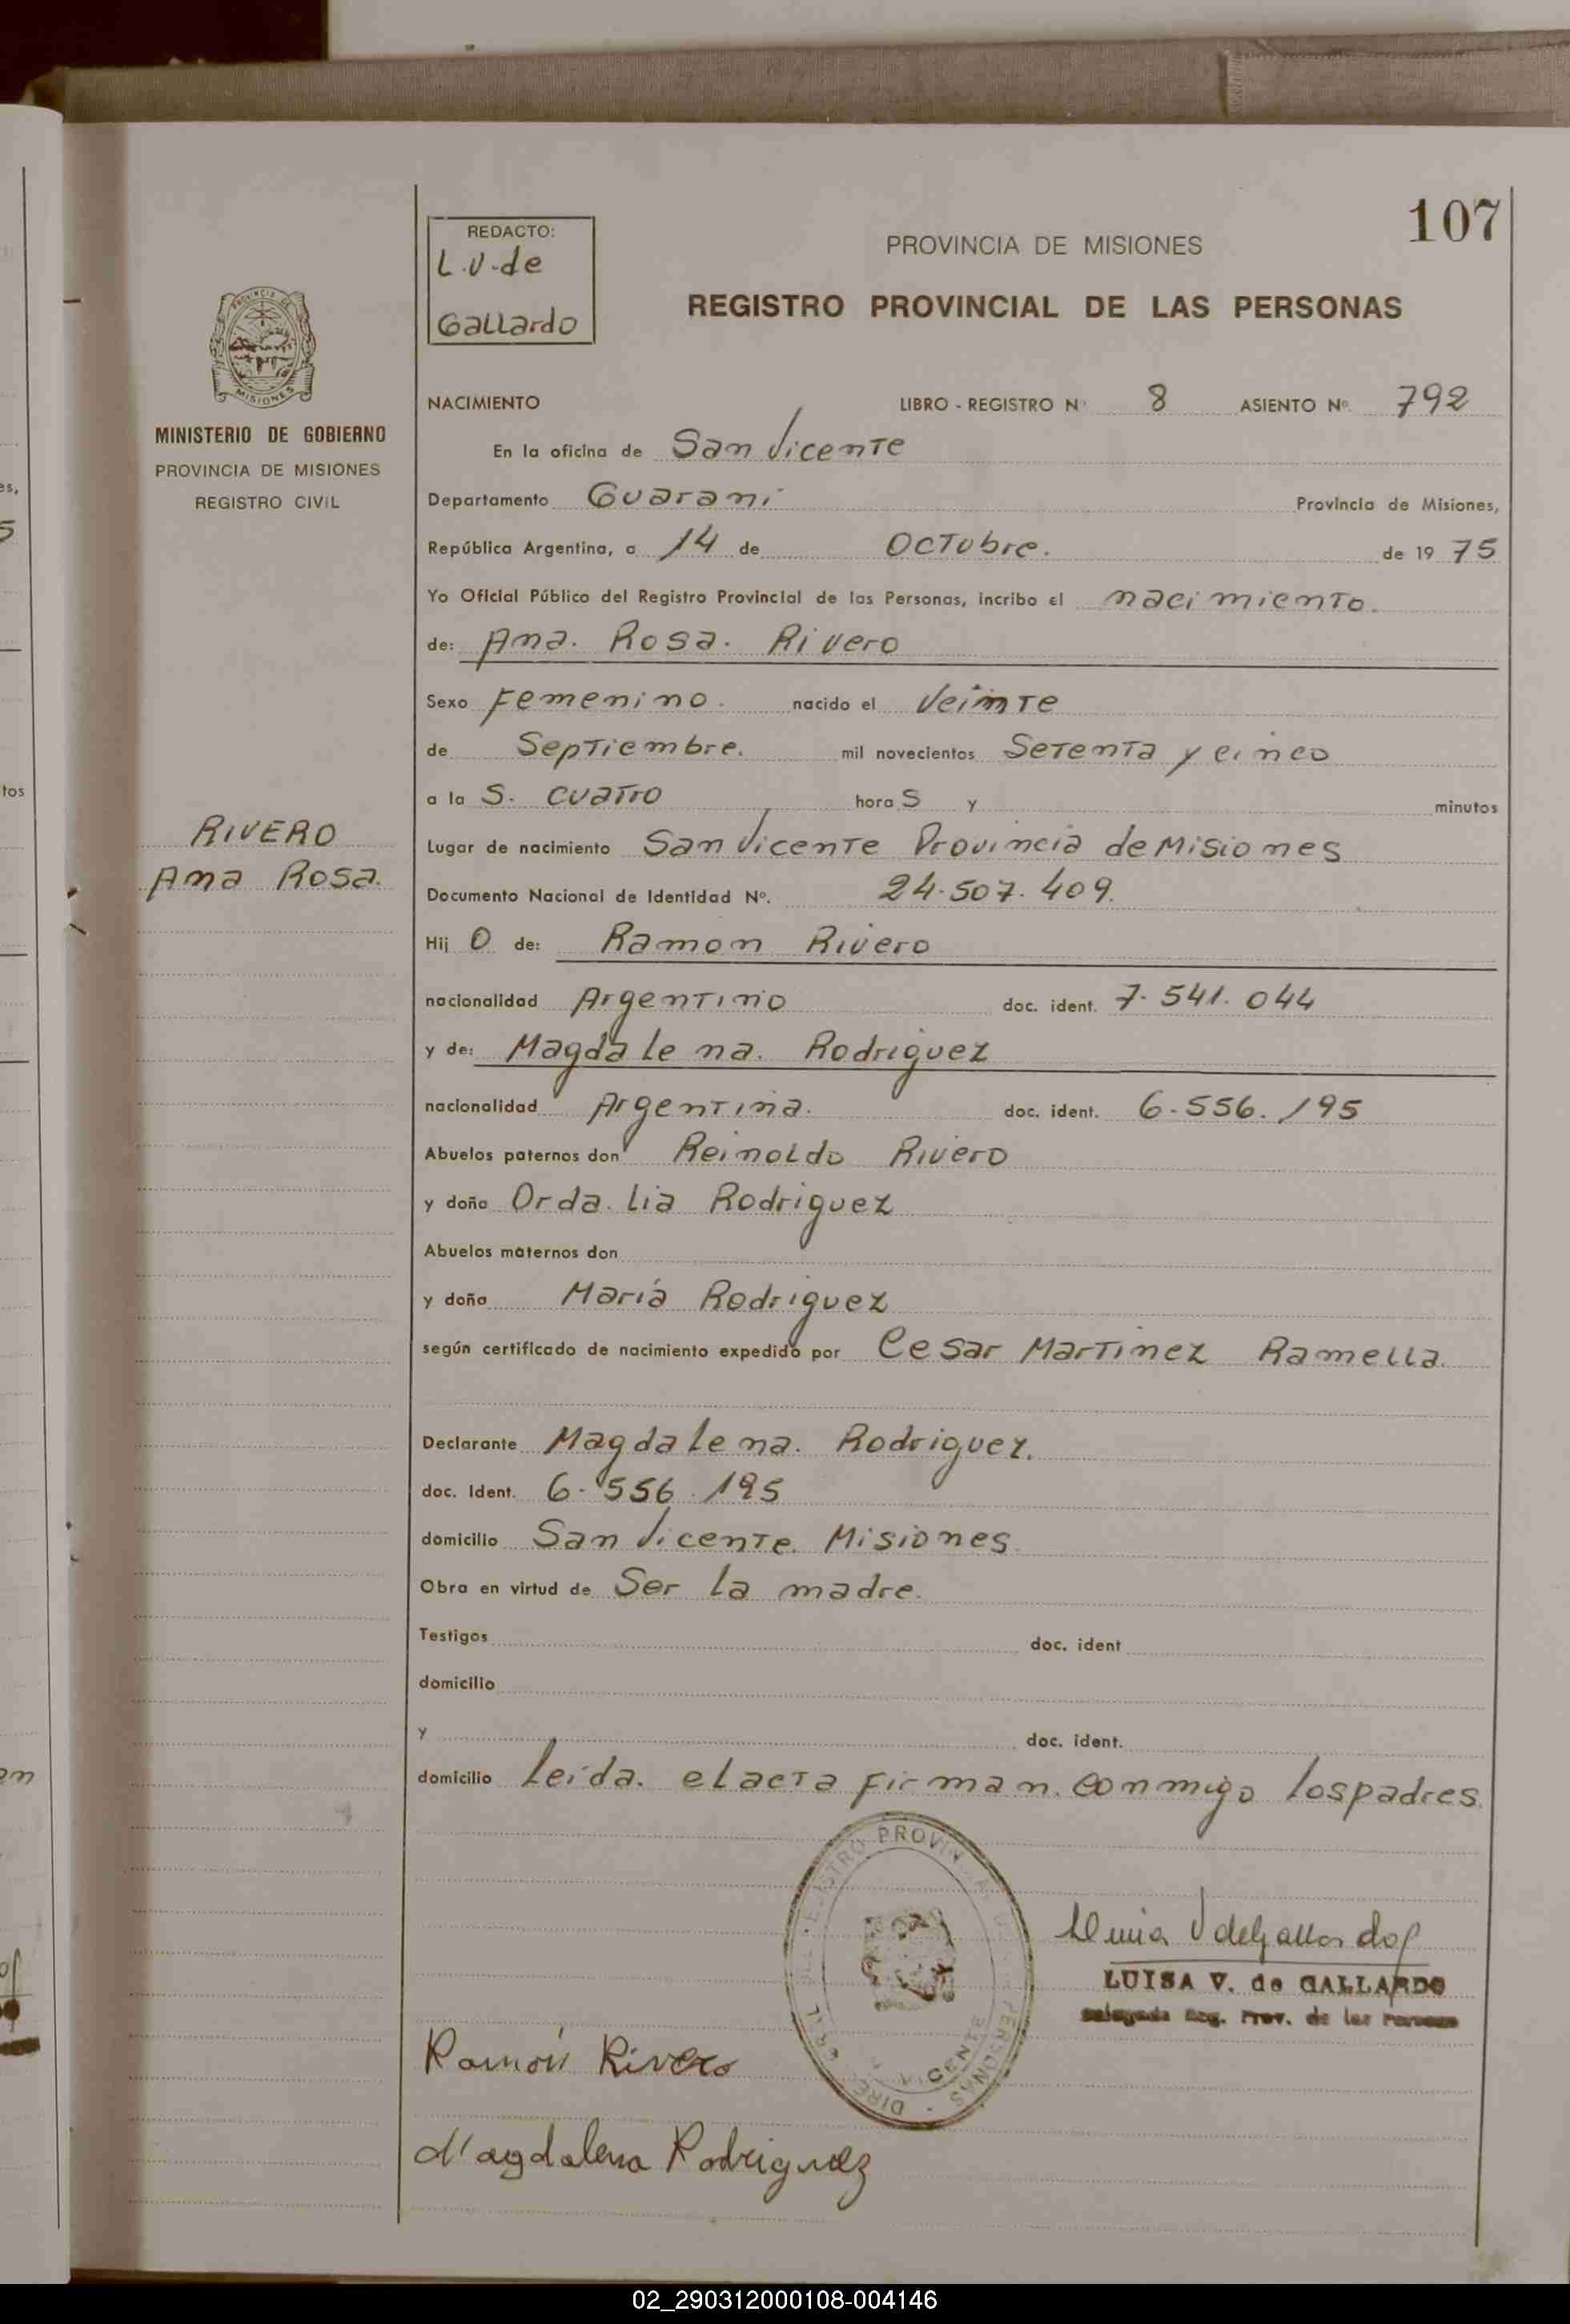 107
REDACTO:
L.V. de
Gallardo
PROVINCIA DE MISIONES
REGISTRO PROVINCIAL DE LAS PERSONAS
PROVINCIA DE
MISIONES
MINISTERIO DE GOBIERNO
PROVINCIA DE MISIONES
REGISTRO CIVIL
RIVERO
Ana Rosa.
NACIMIENTO LIBRO - REGISTRO Nº 8 ASIENTO Nº 792
En la oficina de San Vicente
Departamento Guaraní Provincia de Misiones,
República Argentina, a 14 de Octubre. de 19 75
Yo Oficial Público del Registro Provincial de las Personas, incribo el nacimiento.
de: Ana. Rosa. Rivero
Sexo Femenino. nacido el Veinte
de Septiembre. mil novecientos Setenta y cinco
a la S. cuatro hora S y minutos
Lugar de nacimiento San Vicente Provincia de Misiones
Documento Nacional de Identidad Nº. 24.507.409.
Hij O de: Ramon Rivero
nacionalidad Argentino doc. ident. 7.541.044
y de: Magdalena. Rodriguez
nacionalidad Argentina. doc. ident. 6.556.195
Abuelos paternos don Reinoldo Rivero
y doña Orda.lia Rodriguez
Abuelos maternos don
y doña María Rodriguez
según certificado de nacimiento expedido por Cesar Martinez Ramella.
Declarante Magdalena. Rodriguez.
doc. Ident. 6.556.195
domicilio San Vicente. Misiones
Obra en virtud de Ser la madre.
Testigos doc. ident
domicilio
y doc. ident.
domicilio Leída. el acta Firman. conmigo los padres.
LUISA V. de GALLARDO
Delegada Reg. Prov. de las Personas
Ramón Rivero
Magdalena Rodriguez
02_290312000108-004146